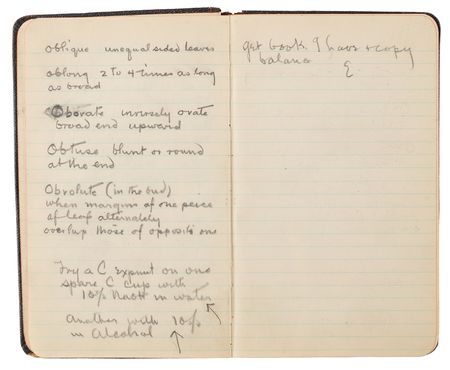 oblique unequal sided leaves
oblong 2 to 4 times as long
as broad
Oborate inversely ovate
broad end upward
Obtuse blunt or round
at the end
Obvolute (in the bud)
when margins of one peice
of leaf alternately
overlap those of opposite one
Try a C expmnt on one
spare C cup with
10% NaOH in water
another with 10%
in Alcohol
get book I have & copy
balance